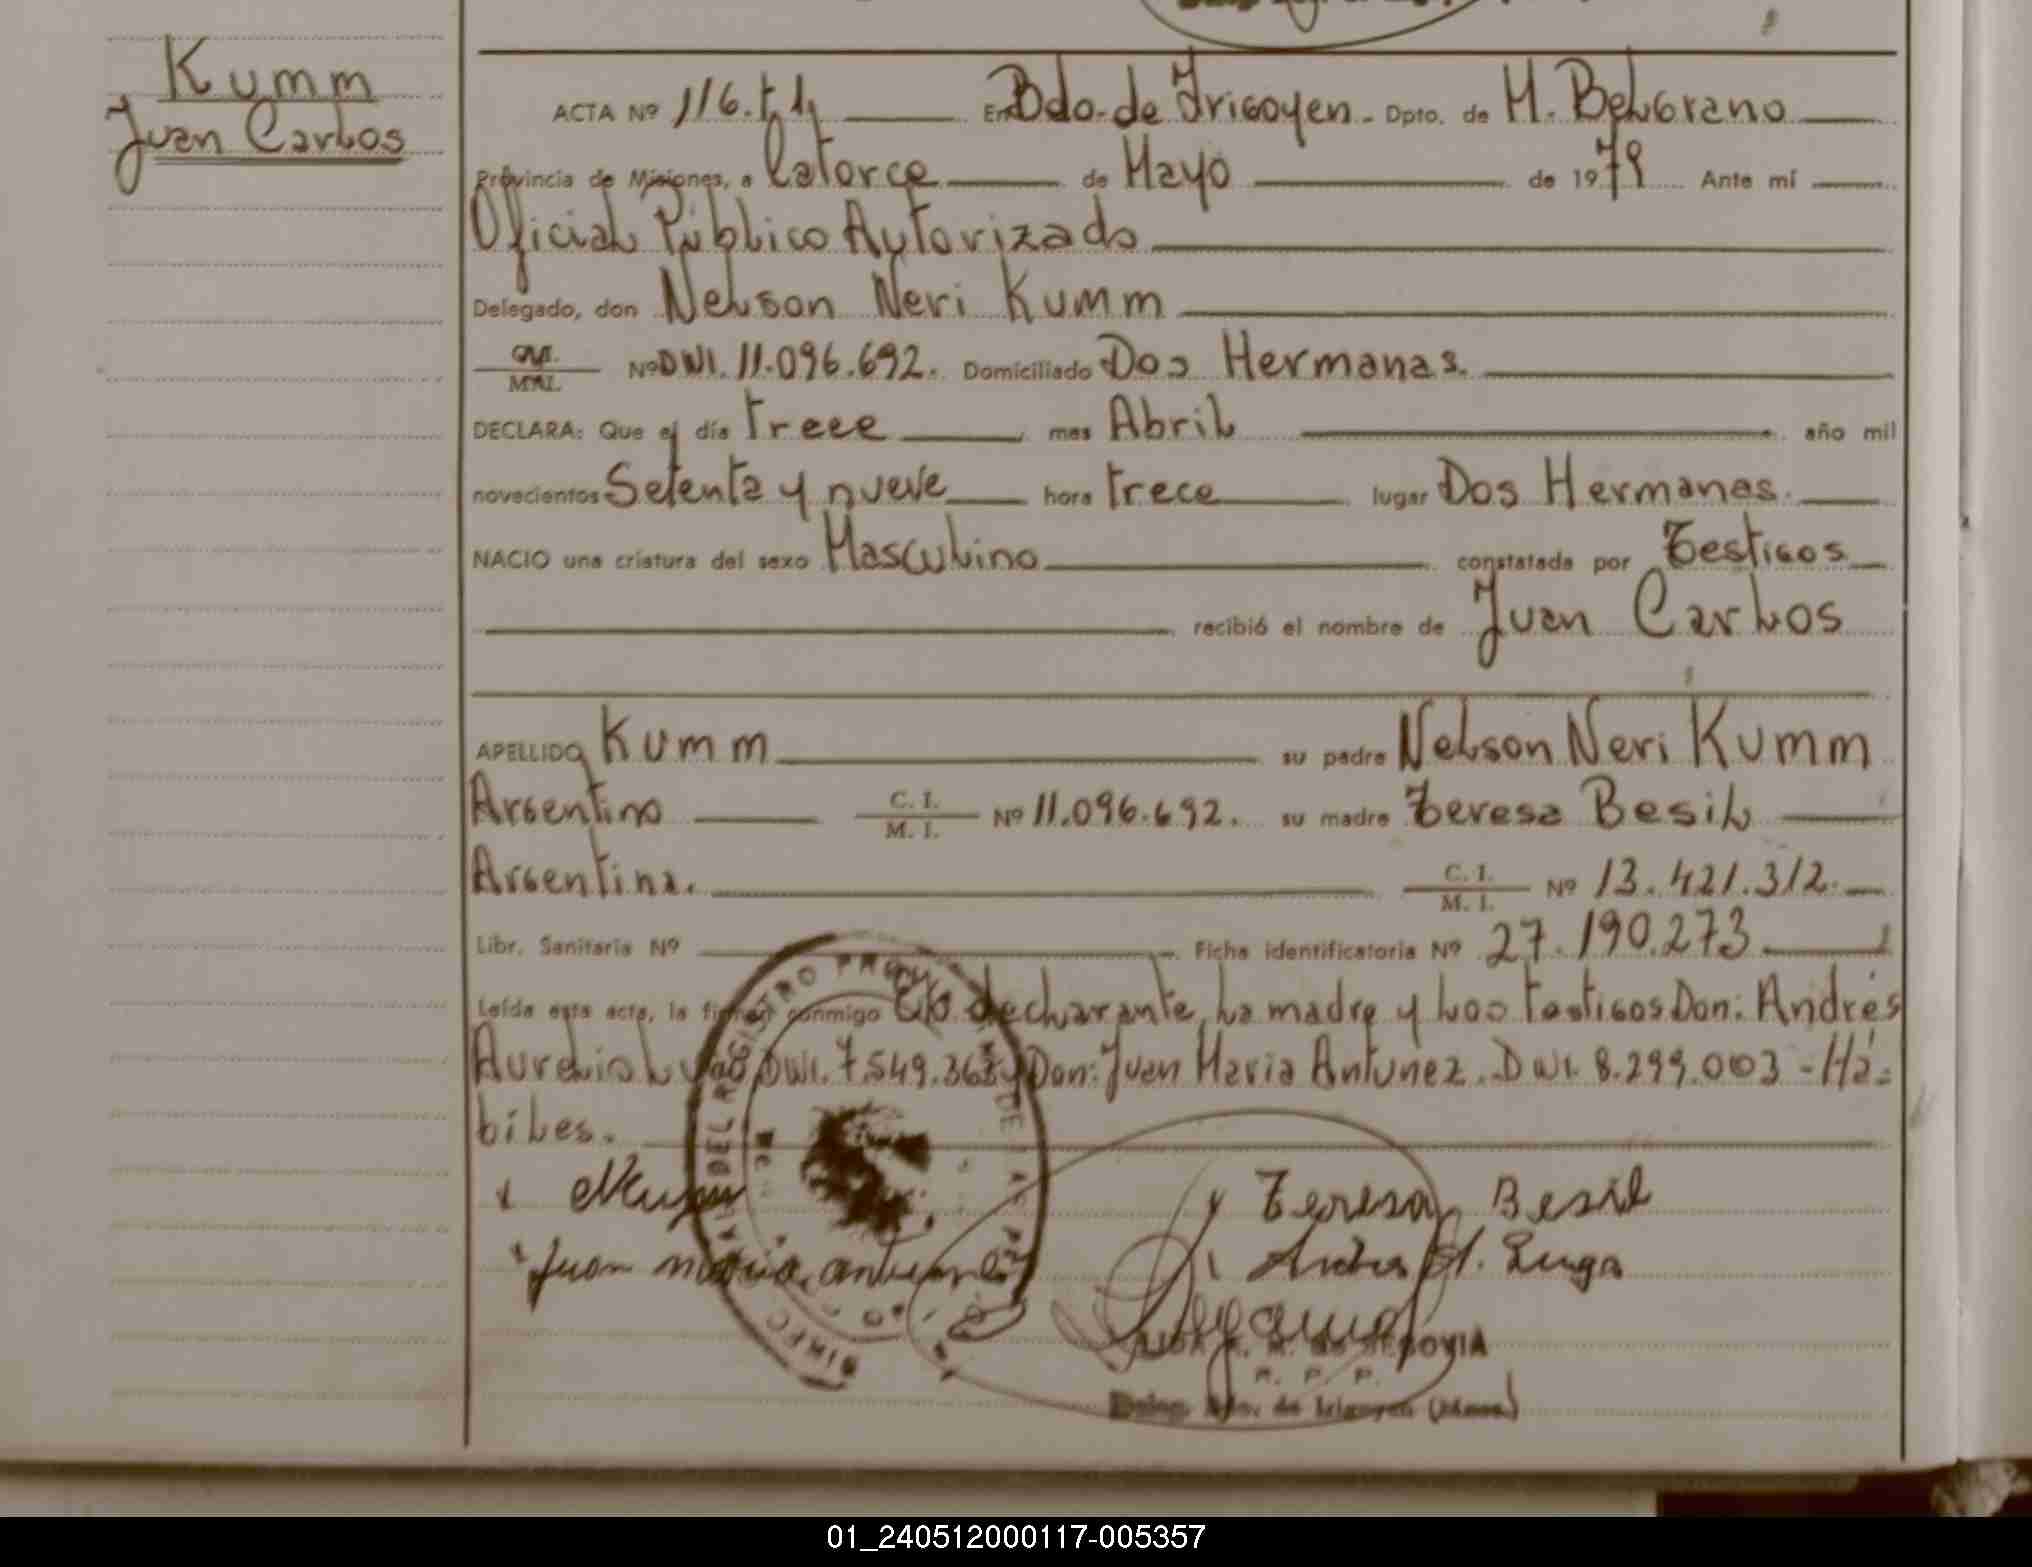 Kumm
Juan Carlos
ACTA Nº 116. t. 1, En Bdo. de Irigoyen. Dpto. de M. Belgrano
Provincia de Misiones, a Catorce de Mayo de 1979 Ante mí
Oficial Público Autorizado
Delegado, don Nelson Neri Kumm
Nº DNI. 11.096.692. Domiciliado Dos Hermanas.
DECLARA: Que el día trece mes Abril año mil
novecientos Setenta y nueve hora trece lugar Dos Hermanas.
NACIO una criatura del sexo Masculino constatada por Testigos
recibió el nombre de Juan Carlos
APELLIDO Kumm su padre Nelson Neri Kumm
Argentino C. I. M. I. Nº 11.096.692. su madre Teresa Besil
Argentina. C. I. M. I. Nº 13.421.312.
Libr. Sanitaria Nº Ficha identificatoria Nº 27.190.273
Leída esta acta, la firman conmigo el declarante, la madre y los testigos Don: Andrés
Aurelio DNI. 7.549.363 y Don: Juan Maria Antunez. DNI. 8.299.003 - Há=
biles.
Teresa Besil
Juan maria
DEL REGISTRO
R. P. P.
01_240512000117-005357